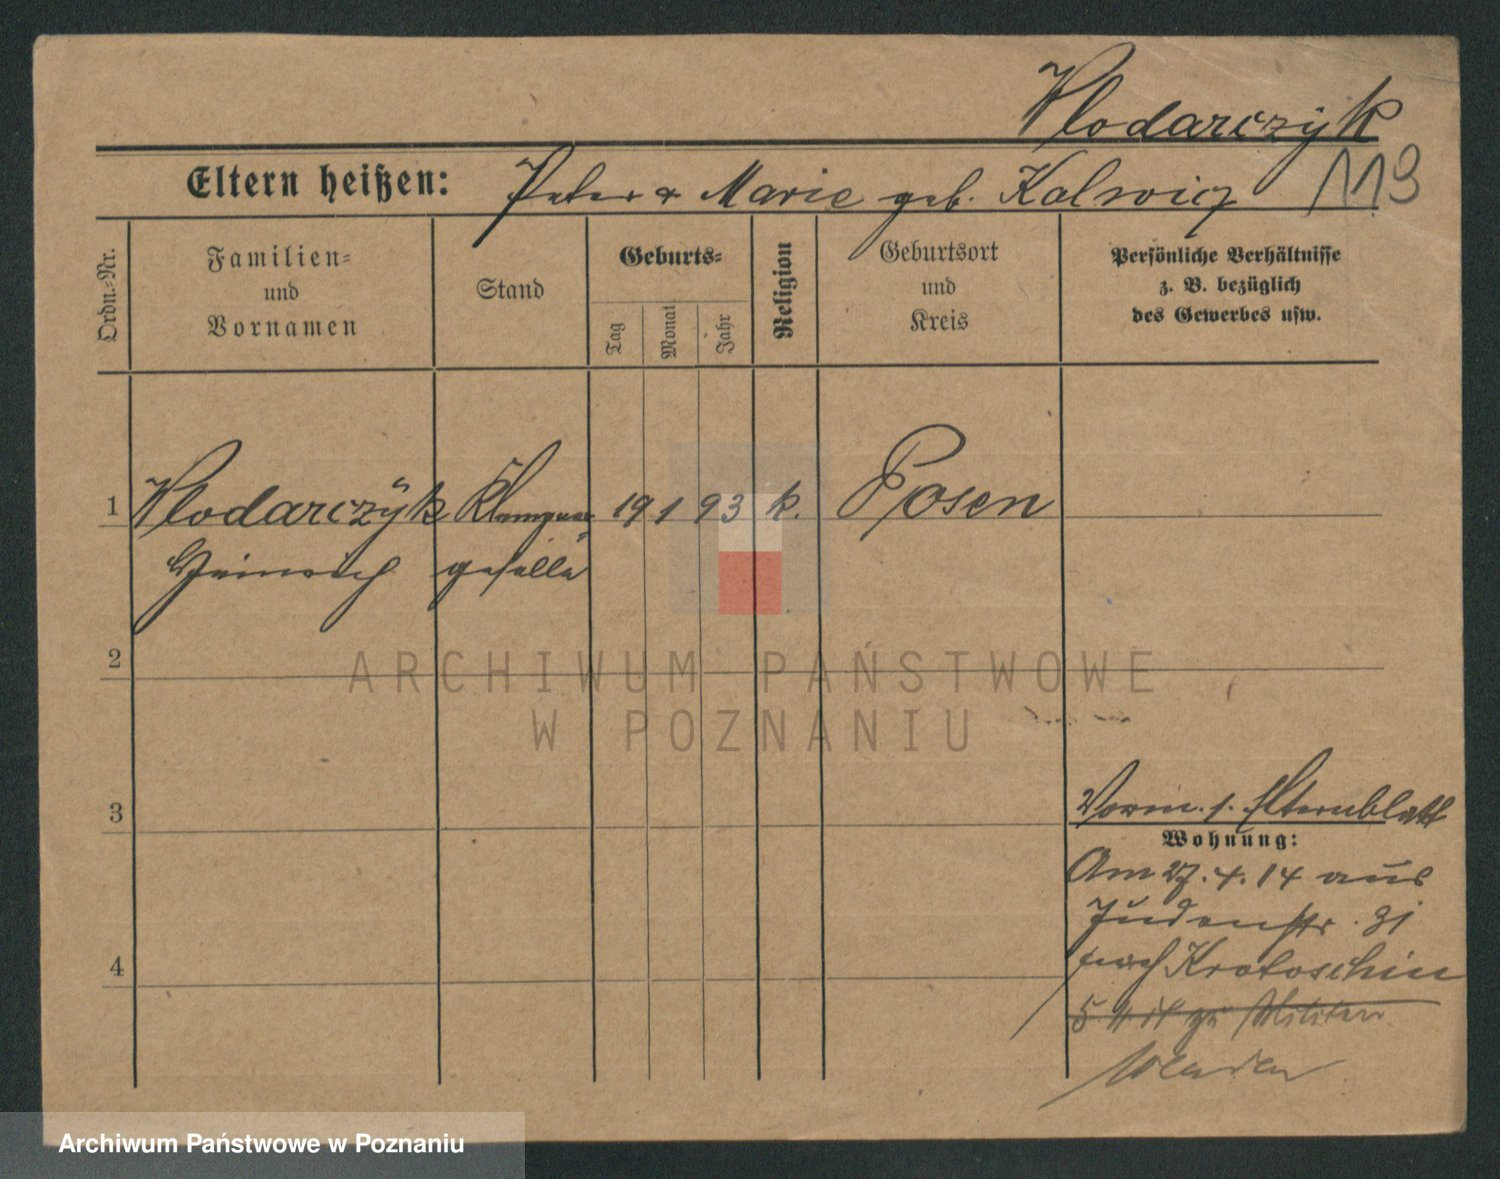 Wlodarczÿk
Eltern heißen: Peter u Marie geb. Kolwicz 113
Ordn.-Nr.
Familien-
und
Vornamen
Stand
Geburts-
Tag
Monat
Jahr
Religion
Geburtsort
und
Kreis
Persönliche Verhältnisse
z. B. bezüglich
des Gewerbes usw.
1 Wlodarczÿk Klempner 19 1 93 k. Posen
Heinrich geselle
2
ARCHIWUM PAŃSTWOWE
W POZNANIU
3
Verm. s. Elternblatt
Wohnung:
Am 27.4.14 aus
Judenstr. 31
nach Krotoschin
4
zu Militär
Archiwum Państwowe w Poznaniu